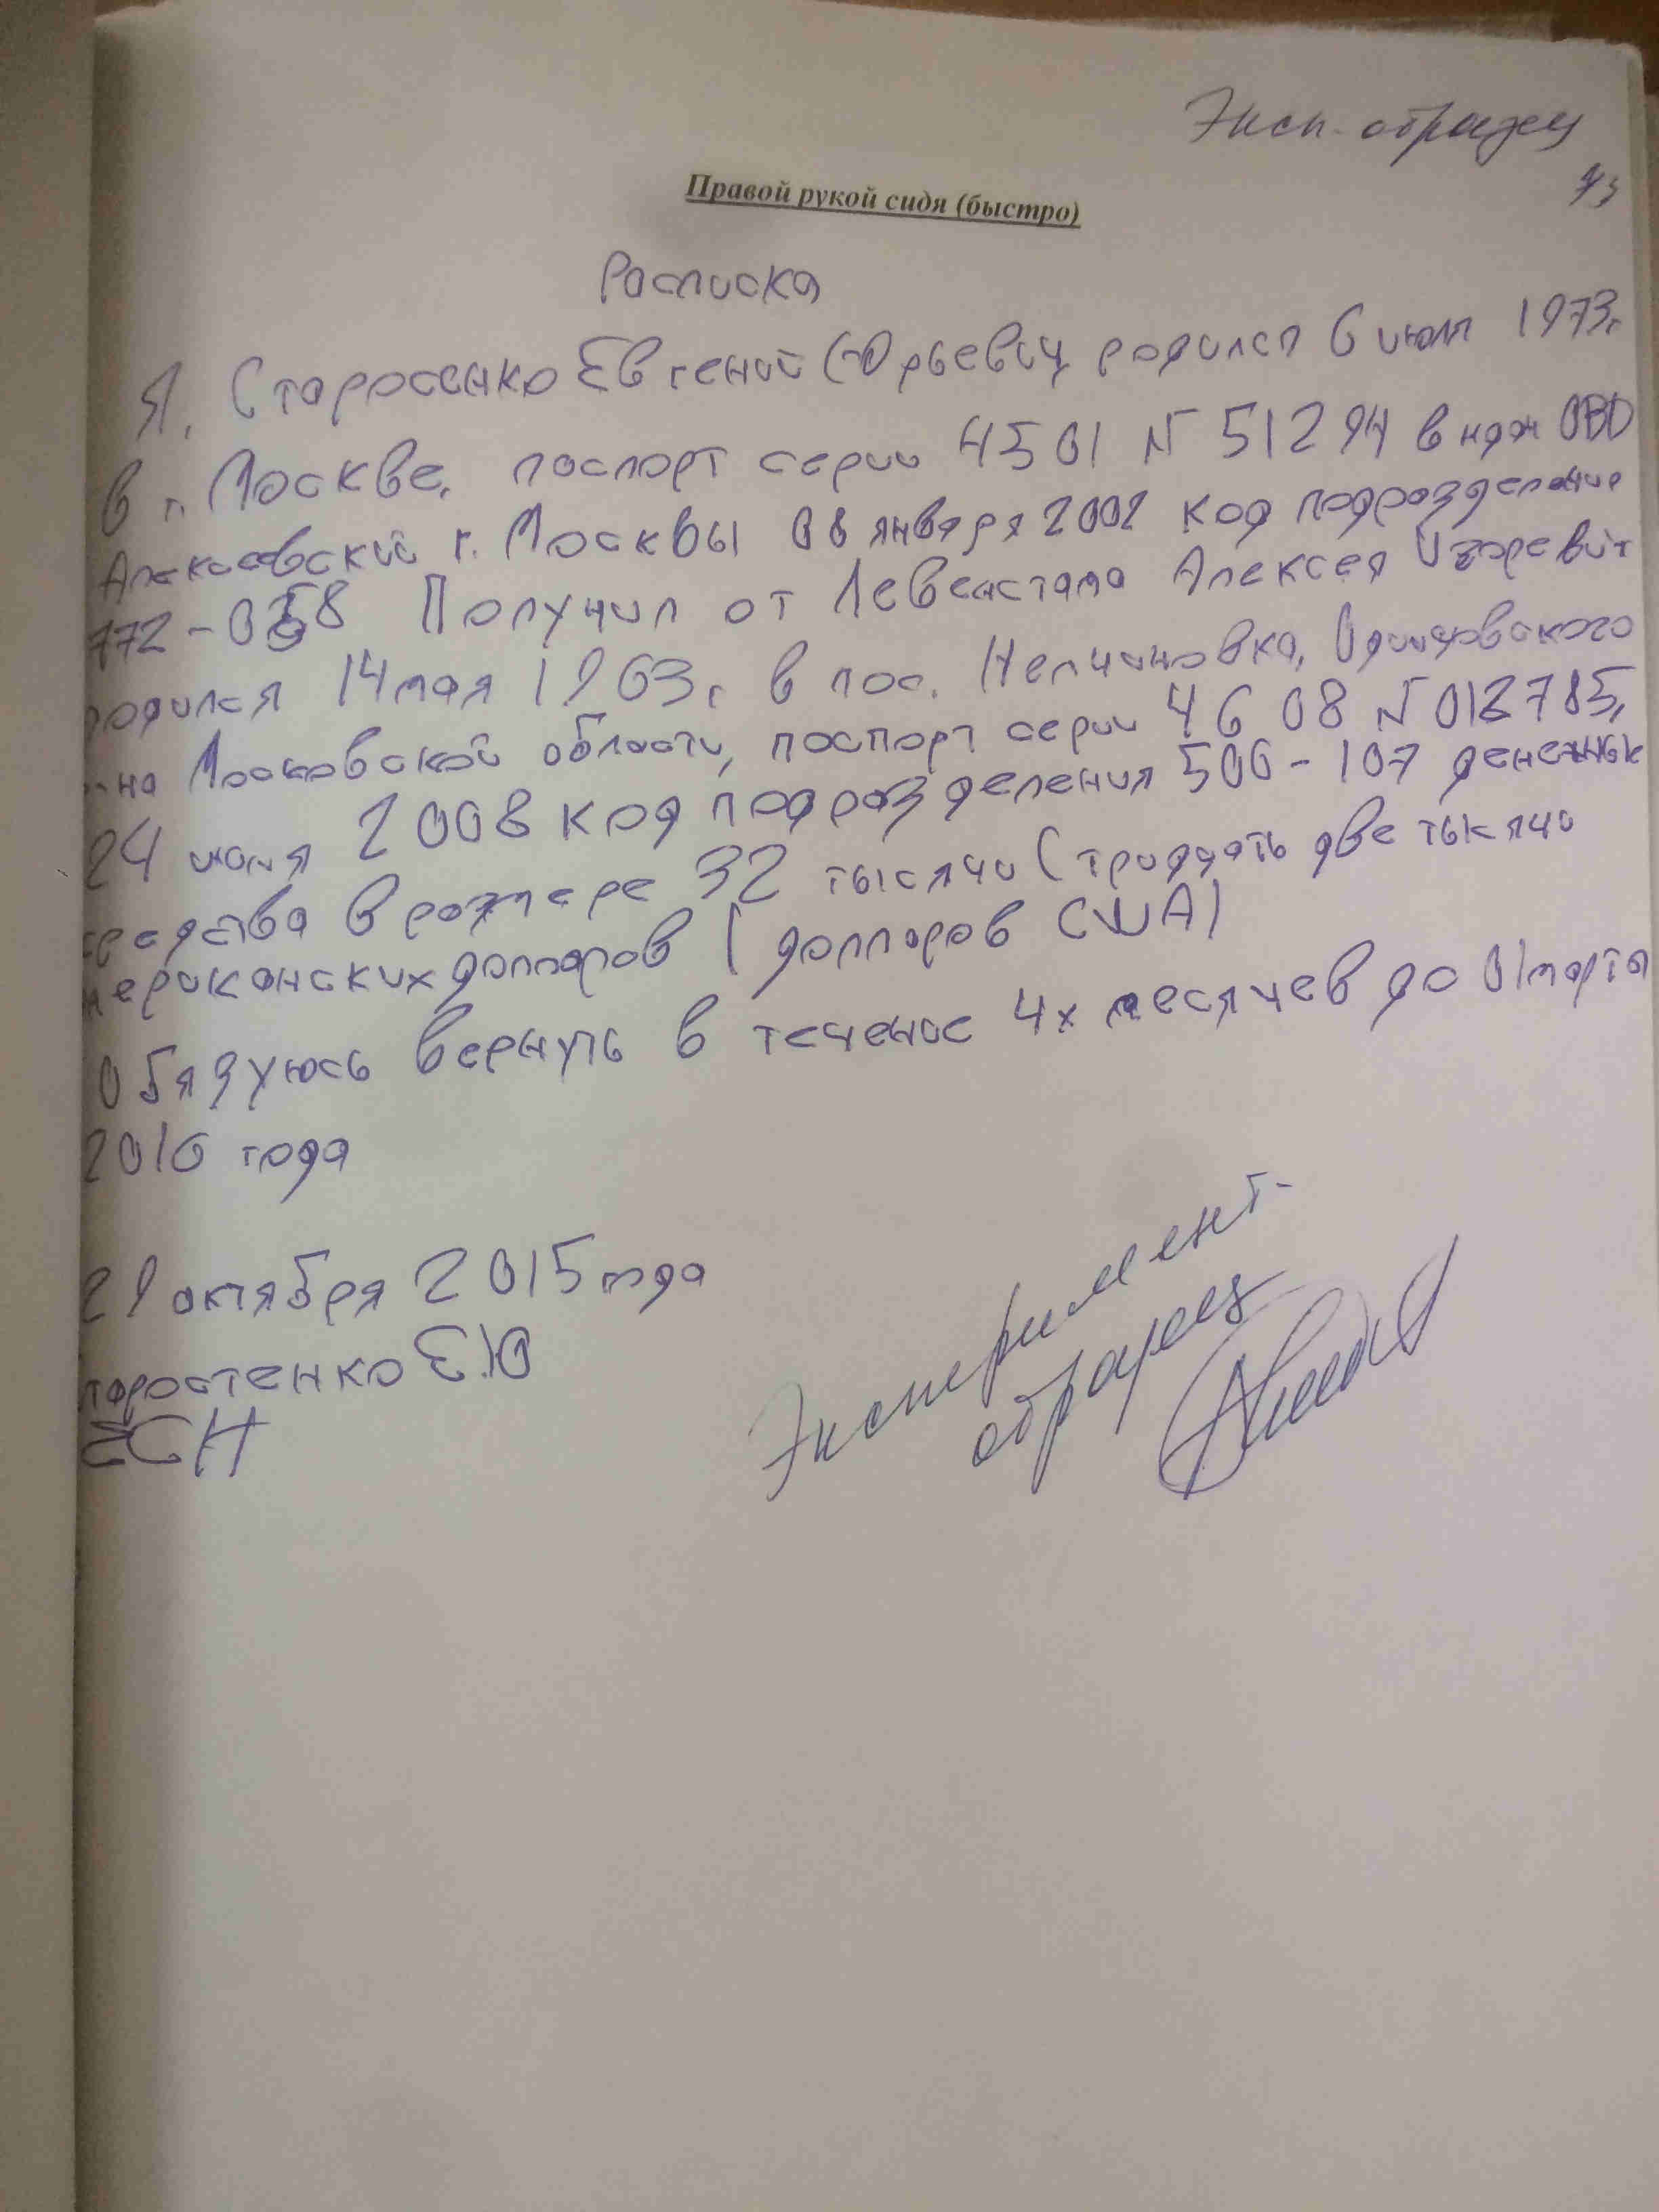 Эксп. образец
73
Правой рукой сидя (быстро)
Расписка
Я, Старостенко Евгений Юрьевич родился 6 июля 1973г.
в г. Москве, паспорт серии 4501 N 51294 выдан ОВД
Алексеевский г. Москвы 08 января 2002 код подразделение
772-058 Получил от Левенстама Алексея Игоревич
родился 14 мая 1963г. в пос. Немчиновка, Одинцовского
р-на Московской области, паспорт серии 46 08 N 013785,
24 июня 2008 код подразделения 500-107 денежные
средства в размере 32 тысячи (тридцать две тысячи
мериканских долларов (долларов США)
Обязуюсь вернуть в течение 4х месяцев до 01 марта
2016 года
29 октября 2015 года
таростенко Е.Ю
Эксперимент-
образец